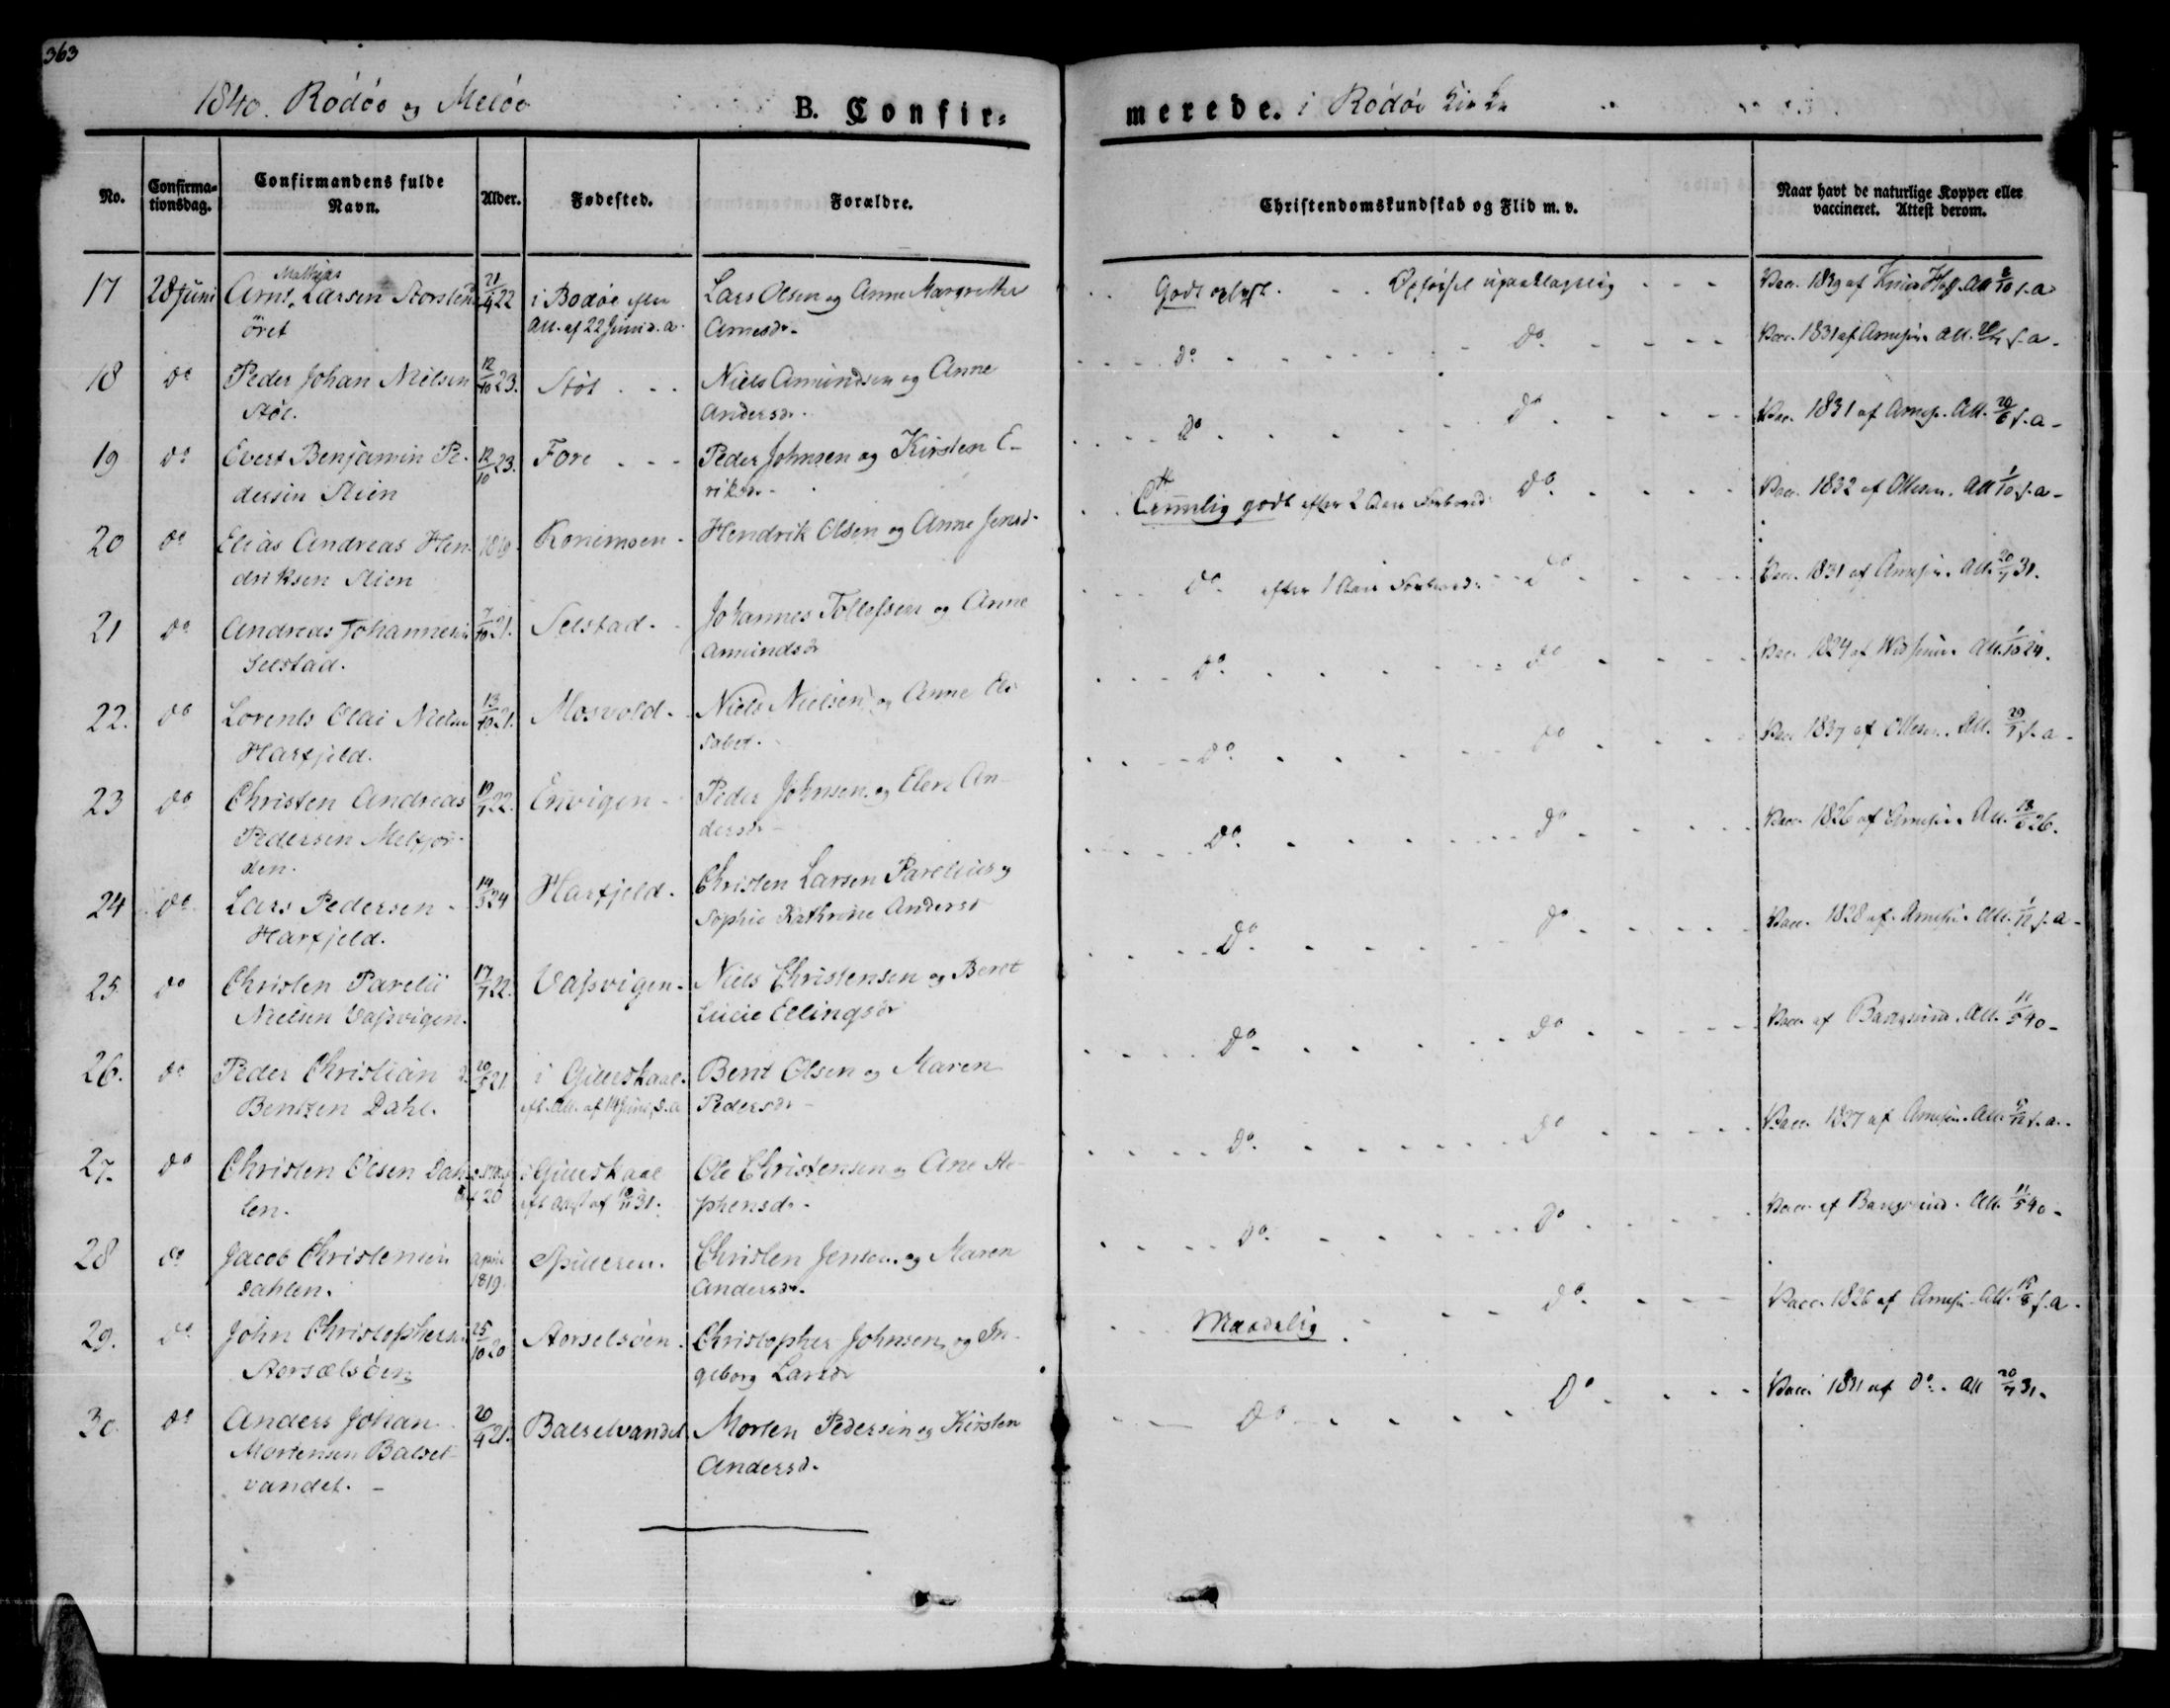 363
1840. Rödöe og Melöe B. Confir-
merede. i Rödöe Kirke
No. Confirma-tionsdag. Confirmandens fulde Navn. Alder. Fødested. Forældre.
Christendomskundskab og Flid m. v. Naar havt de naturlige Kopper eller vaccineret. Attest derom.
17 28 Juni Arnt Mathias Larsen Storsten- 21/4 22 i Bodöe efter Lars Olsen og Anne Margrethe
öret Att. af 22 Juni d. a. Arnesdr.
Godt oplyst. Opførsel upaaklagelig Vacc. 1839 af Att. 8/10 s. a.
18 do Peder Johan Nielsen 12/10 23. Støt Niels Amundsen og Anne
Støt. Andersdr.
do do Vacc. 1831 af Arnesen Att. s. a.
19 do Evert Benjamin Pe- 12/10 23. Fore Peder Johnsen og Kirsten E-
dersen Stien riksdr.
do do Vacc. 1831 af Arnes. Att. 20/6 s. a.
20 do Elias Andreas Hen- 1819. Konemoen Hendrik Olsen og Anne Jensd.
driksen Stien
Temmelig godt efter 2 Aars Forbered. do Vacc. 1832 af Olsen. Att 1/10 s. a.
21 do Andreas Johannesen 7/10 21. Selstad. Johannes Tollefsen og Anne
Selstad. Amundsdr
do efter 1 Aars Forbered. do Vacc. 1831 af Arnesen. Att. 20/7 31.
22. do Lorents Olai Nielsen 13/10 21. Mosvold. Niels Nielsen og Anne Eli-
Harfjeld. sabet.
do do Vacc. 1824 af Att. 1/10 24.
23 do Christen Andreas 19/7 22. Envigen Peder Johnsen og Elen An-
Pedersen Melfjor- dersdr
den.
do do Vacc. 1837 af Olsen. Att. 29/7 s. a.
24 do Lars Pedersen 14/3 24 Harfjeld. Christen Larsen Parelius og
Harfjeld. Sophie Kathrine Andersd
do do Vacc. 1826 af Arnesen. Att. 26.
25 do Christen Parelii 17/7 22. Vasvigen. Niels Christensen og Beret
Nielsen Vasvigen. Lucie Ellingsdr
do do Vacc. 1828 af Arnesen. Att. 1/12 s. a.
26. do Peder Christian 20/3 21. i Gilleskaal. Bent Olsen og Maren
Bentzen Dahl. eft. Att. af 14 Juni d. a. Pedersdr
do do Vacc. af Bangsund. Att. 11/5 40.
27. do Christen Olsen Dah- 20 i Gilleskaal Ole Christensen og Ane Ste-
len. eft. Att. af 31. phensdr.
do do Vacc. 1827 af Arnesen. Att. s. a.
28 do Jacob Christensen April 1819. Spilleren. Christen Jensen og Maren
Dahlen. Andersdr.
do do Vacc. af Bangsund. Att. 11/5 40.
29. do John Christophersen 25/10 20 Storselsöen. Christopher Johnsen og In-
Storselsöen geborg Larsdr
Maadelig do Vacc. 1826 af Arnesen Att. s. a.
30. do Anders Johan 20/4 21. Balselvandet Morten Pedersen og Kirsten
Mortensen Balset- Andersd.
vandet.
do do Vacc. 1831 af do. Att 20/7 31.